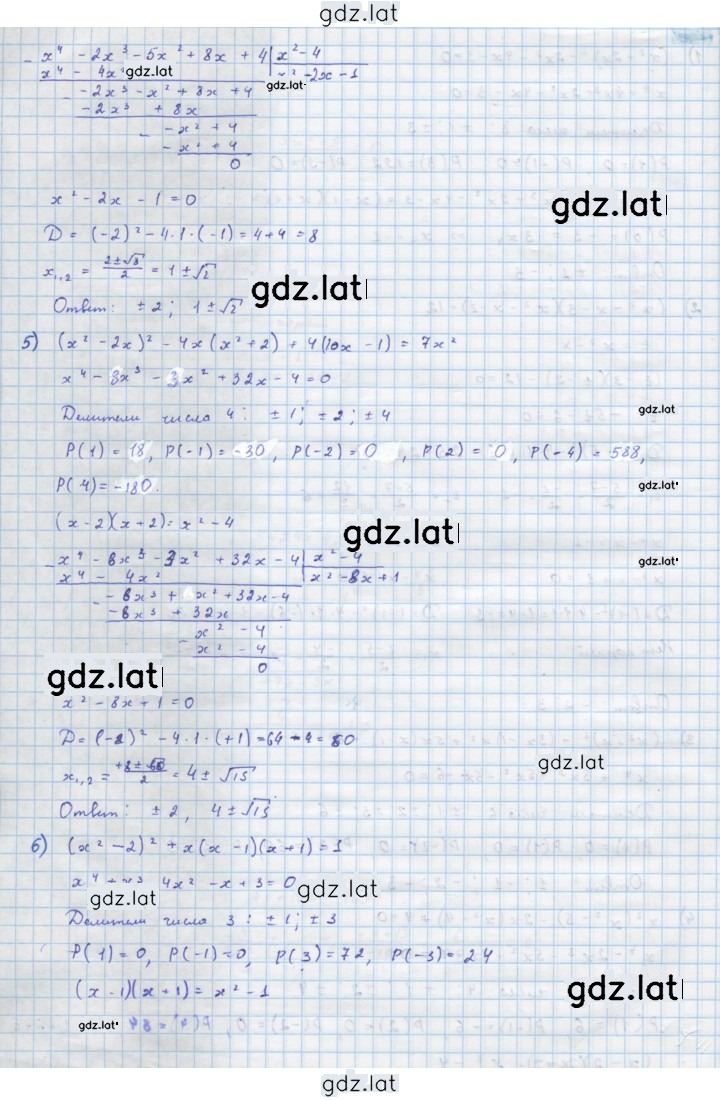 gdz.lat
x⁴ - 2x³ - 5x² + 8x + 4 | x² - 4
x⁴ - 4x² gdz.lat x² - 2x - 1
gdz.lat
- 2x³ - x² + 8x + 4
- 2x³ + 8x
- x² + 4
- x² + 4
0
x² - 2x - 1 = 0
gdz.lat
D = (-2)² - 4·1·(-1) = 4 + 4 = 8
x₁,₂ = (2±√8)/2 = 1 ± √2
gdz.lat
Ответ: ± 2; 1 ± √2
5) (x² - 2x)² - 4x(x² + 2) + 4(10x - 1) = 7x²
x⁴ - 8x³ - 3x² + 32x - 4 = 0
gdz.lat
Делители числа 4: ± 1; ± 2; ± 4
P(1) = 18, P(-1) = -30, P(-2) = 0, P(2) = 0, P(-4) = 588,
gdz.lat
P(4) = -180.
(x - 2)(x + 2) = x² - 4
gdz.lat
x⁴ - 8x³ - 3x² + 32x - 4 | x² - 4
gdz.lat
x⁴ - 4x² x² - 8x + 1
- 8x³ + x² + 32x - 4
- 8x³ + 32x
x² - 4
x² - 4
gdz.lat
0
gdz.lat
x² - 8x + 1 = 0
D = (-8)² - 4·1·(+1) = 64 - 4 = 60
gdz.lat
x₁,₂ = (+8 ± √60)/2 = 4 ± √15
Ответ: ± 2, 4 ± √15
6) (x² - 2)² + x(x - 1)(x + 1) = 1
x⁴ + x³ 4x² - x + 3 = 0
gdz.lat gdz.lat
Делители числа 3: ± 1; ± 3
P(1) = 0, P(-1) = 0, P(3) = 72, P(-3) = 24
(x - 1)(x + 1) = x² - 1
gdz.lat
gdz.lat
gdz.lat